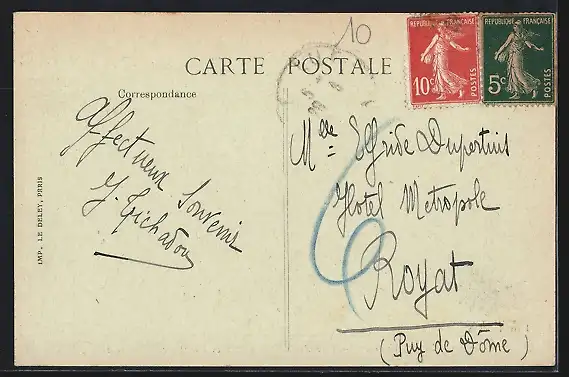 10
RÉPUBLIQUE FRANÇAISE
10c POSTES
RÉPUBLIQUE FRANÇAISE
5c POSTES
CARTE POSTALE
Correspondance
Affectueux Souvenir
Mlle Elfride Dupertuis
Hotel Metropole
Royat
(Puy de Dôme)
6
IMP. LE DELEY, PARIS